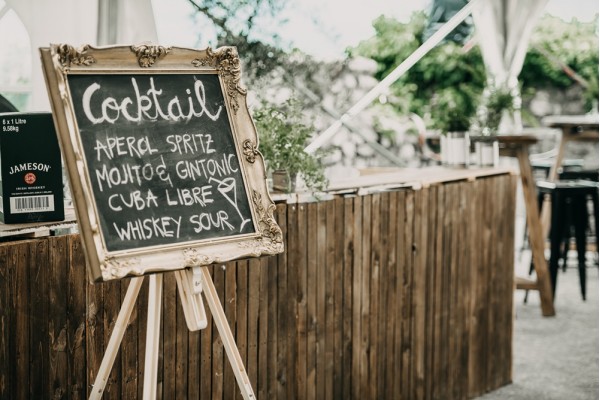 Cocktail
APEROL SPRITZ
MOJITO & GINTONIC
CUBA LIBRE
WHISKEY SOUR
6 x 1 Litre
9.58kg
JAMESON
IRISH WHISKEY